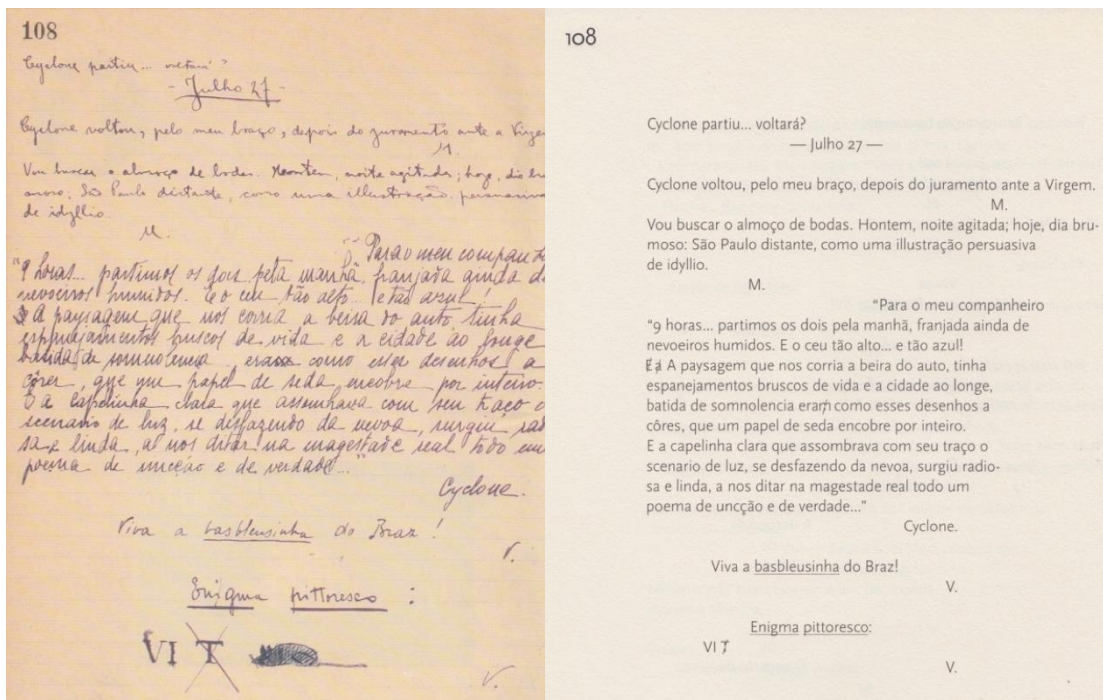 108
Cyclone partiu... voltará?
- Julho 27 -
Cyclone voltou, pelo meu braço, depois do juramento ante a Virgem
M.
Vou buscar o almoço de bodas. Hontem, noite agitada; hoje, dia bru
moso: São Paulo distante, como uma illustração
de idyllio.
M.
"Para o meu companhe
"9 horas... partimos os dois pela manhã, franjada ainda de
nevoeiros humidos. E o ceu tão alto... e tão azul!
A paysagem que nos corria a beira do auto, tinha
espanejamentos bruscos de vida e a cidade ao longe
batida de somnolencia eram como esses desenhos a
côres, que um papel de seda encobre por inteiro.
E a capelinha clara que assombrava com seu traço o
scenario de luz, se desfazendo da nevoa, surgiu radio
sa e linda, a nos ditar na magestade real todo um
poema de uncção e de verdade..."
Cyclone.
Viva a basbleusinha do Braz!
V.
Enigma pittoresco:
VI T
V.
108
Cyclone partiu... voltará?
— Julho 27 —
Cyclone voltou, pelo meu braço, depois do juramento ante a Virgem.
M.
Vou buscar o almoço de bodas. Hontem, noite agitada; hoje, dia bru-
moso: São Paulo distante, como uma illustração persuasiva
de idyllio.
M.
"Para o meu companheiro
"9 horas... partimos os dois pela manhã, franjada ainda de
nevoeiros humidos. E o ceu tão alto... e tão azul!
E a A paysagem que nos corria a beira do auto, tinha
espanejamentos bruscos de vida e a cidade ao longe,
batida de somnolencia eram como esses desenhos a
côres, que um papel de seda encobre por inteiro.
E a capelinha clara que assombrava com seu traço o
scenario de luz, se desfazendo da nevoa, surgiu radio-
sa e linda, a nos ditar na magestade real todo um
poema de uncção e de verdade..."
Cyclone.
Viva a basbleusinha do Braz!
V.
Enigma pittoresco:
VI T
V.